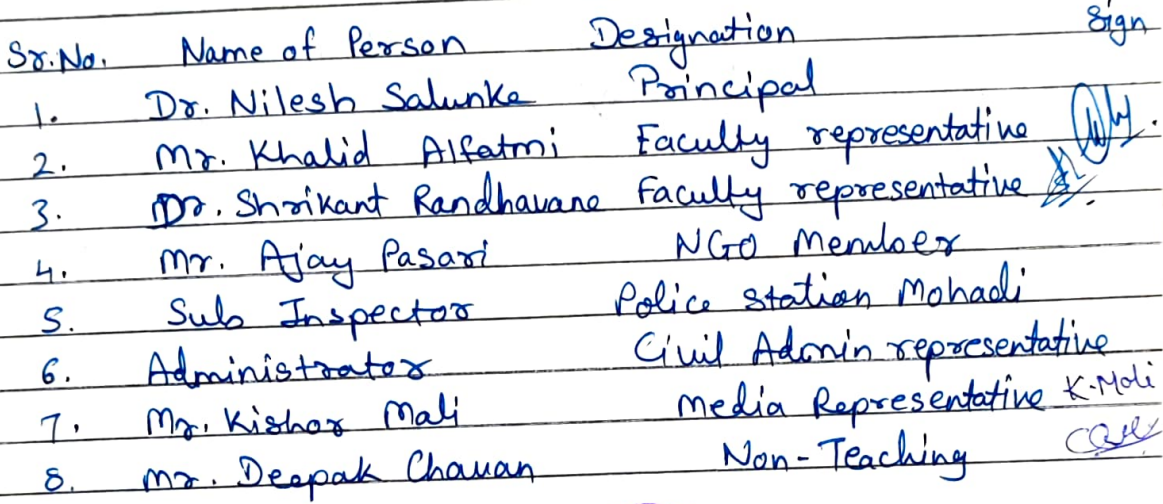 Sr.No. Name of Person Designation Sign
1. Dr. Nilesh Salunke Principal
2. Mr. Khalid Alfatmi Faculty representative
3. Dr. Shrikant Randhavane Faculty representative
4. Mr. Ajay Pasari NGO Member
5. Sub Inspector Police Station Mohadi
6. Administrator Civil Admin representative
7. Mr. Kishor Mali Media Representative K.Mali
8. Mr. Deepak Chavan Non-Teaching